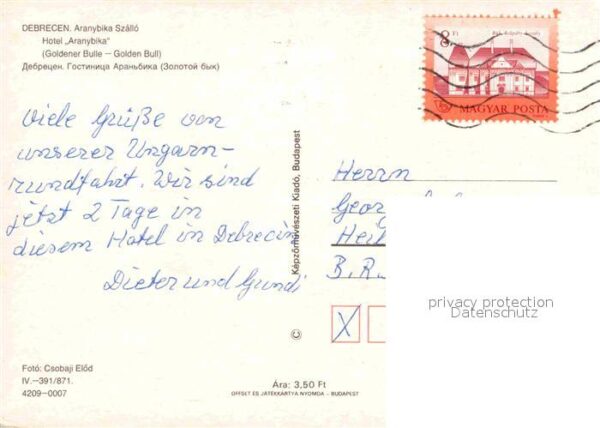 DEBRECEN. Aranybika Szálló
Hotel „Aranybika"
(Goldener Bulle — Golden Bull)
Дебрецен. Гостиница Араньбика (Золотой бык)
Viele Grüße von
unserer Ungarn-
rundfahrt. Wir sind
jetzt 2 Tage in
diesem Hotel in Debrecin
Dieter und Gundi
Fotó: Csobaji Előd
IV.—391/871.
4209-0007
Ára: 3,50 Ft
OFFSET ÉS JÁTÉKKÁRTYA NYOMDA - BUDAPEST
© Képzőművészeti Kiadó, Budapest
8 Ft
MAGYAR POSTA
Herrn
Georg
Heil
B.R.
X
privacy protection
Datenschutz